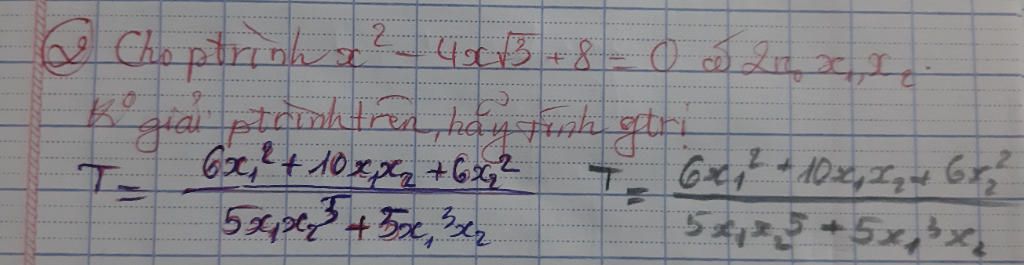 ② Cho ptrình x² - 4x√3 + 8 = 0 có 2no x₁, x₂.
Ko giải ptrình trên, hãy tính gtrị
T = (6x₁² + 10x₁x₂ + 6x₂²)/(5x₁x₂³ + 5x₁³x₂) T = (6x₁² + 10x₁x₂ + 6x₂²)/(5x₁x₂⁵ + 5x₁³x₂)